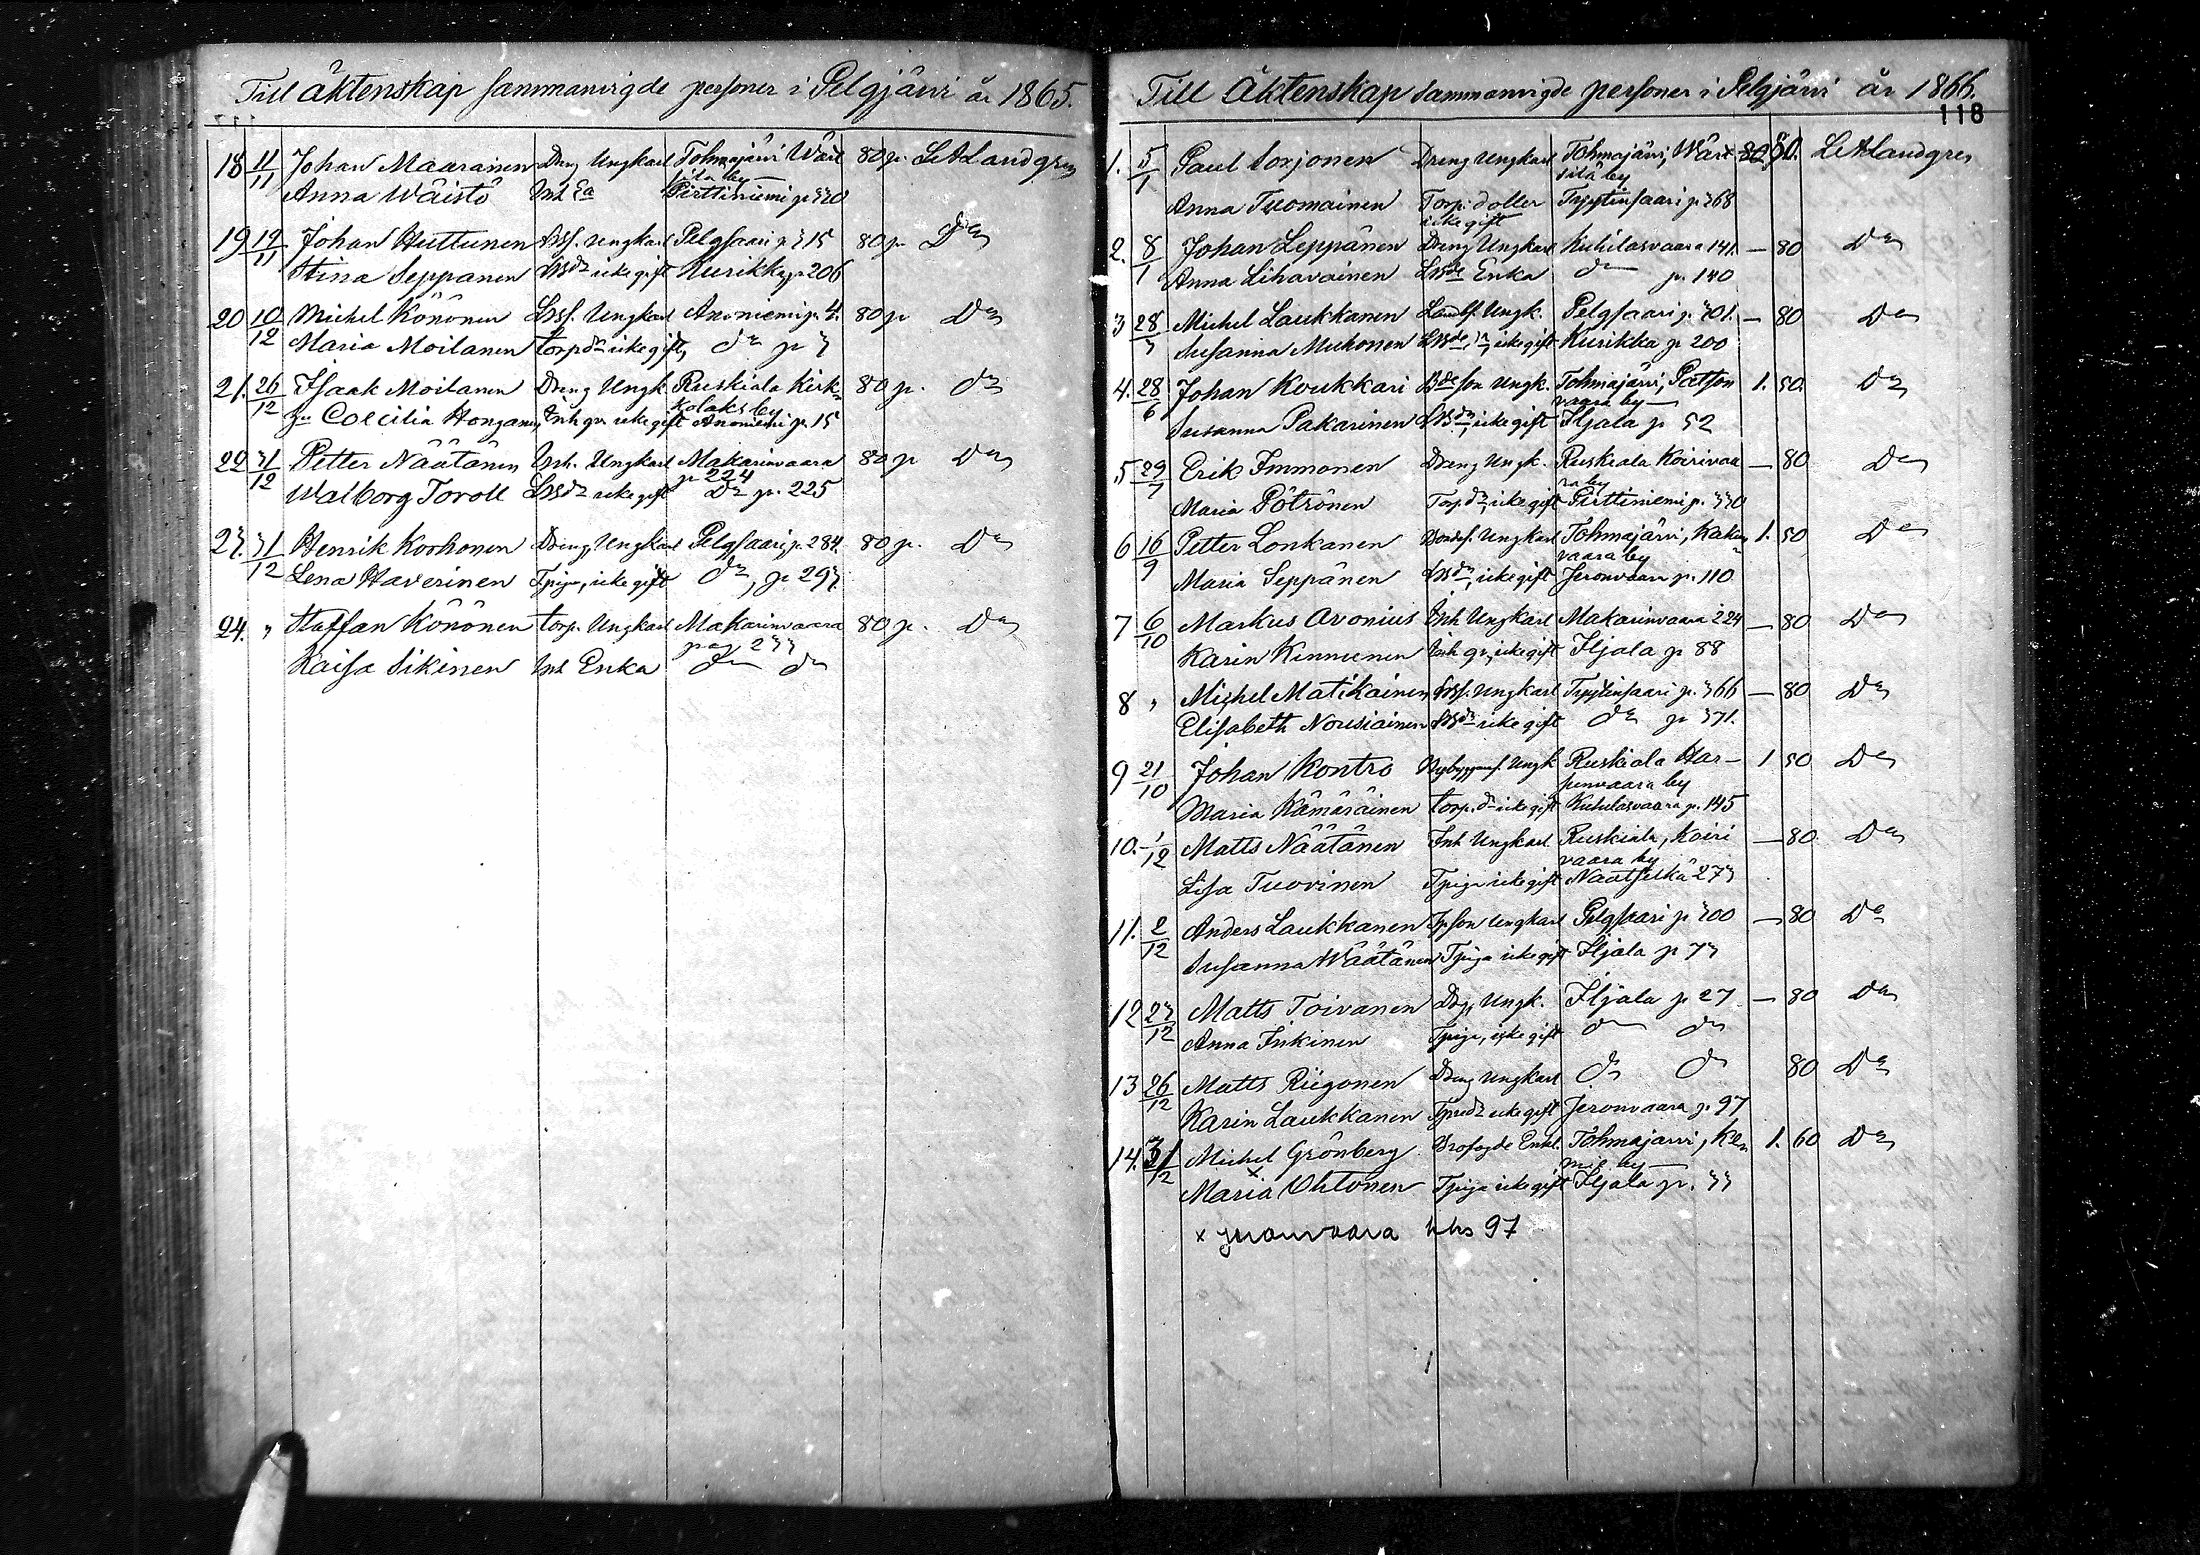 Till äktenskap sammanvigde personer i Pelgjärvi år 1865.
18 11/11 Johan Maaranen Dreng Ungkarl Tohmajärvi Wärt 80 p. LALandgren
sila by
Anna Wäistö Inh Ea Pirttiniemi p. 320
19 19/11 Johan Huttunen Lbsf. Ungkarl Pelgsaari p 315 80 p Do
Stina Seppänen Lbsdr icke gift Kurikka p. 206
20 10/12 Michel Könönen Lbsf. Ungkarl Anoniemi p. 4. 80 p Do
Maria Moilanen torp dr icke gift, do p 3
21. 26/12 Isaak Moilanen Dreng Ungk. Ruskiala Kirk- 80 p. do
kolaks by
Coecilia Honganen, Inh qv. icke gift Anoniemi p. 15
22 31/12 Petter Näätänen Inh. Ungkarl Makarinvaara 80 p Do
p 224
Walborg Toroll Lbsdr icke gift Do p. 225
23. 31/12 Henrik Korhonen Dreng Ungkarl Pelgsaari, p. 284. 80 p. Do
Lena Haverinen Tpiga, icke gift do, p. 293
24. " Staffan Könönen torp. Ungkarl Makarinvaara 80 p. Do
pag 233
Kaisa Sikinen Inh Enka do do
Till Äktenskap sammanvigde personer i Pelgjärvi år 1866.
118
1. 5/1 Paul Sorjonen Dreng Ungkarl Tohmajärvi, Wärt 80. LALandgren
silä by
Anna Tuomainen Torp. dotter Tryytinsaari p 368
icke gift
2. 8/1 Johan Leppänen Dreng Ungkarl Kuhilasvaara 141. — 80 Do
Anna Lihavainen Lbsde Enka do p. 140
3 28/3 Michel Laukkanen Landbf. Ungk. Pelgsaari p. 301. — 80 Do
Susanna Muhonen Lbsde, dr, icke gift Kurikka p 200
4. 28/6 Johan Koukkari Bdeson Ungk. Tohmajärvi, Patson 1. 50. Do
vaara by
Susanna Pakarinen Lbsdr, icke gift Iljala p 52
5 29/7 Erik Immonen Dreng Ungk. Ruskiala Koirivaa — 80 Do
ra by
Maria Pötrönen Torp. dr, icke gift Pirttiniemi p. 330
6 16/9 Petter Lonkanen Bondes. Ungkarl Tohmajärvi, Kaku 1. 50 Do
vaara by
Maria Seppänen Lbsdr, icke gift Jeronvaara p. 110
7 6/10 Markus Avonius Inh Ungkarl Makarinvaara 224 — 80 Do
Karin Kinnunen Inh qv, icke gift Iljala p 88
8 " Michel Matikainen Lbsf. Ungkarl Tryytinsaari p. 366 — 80 Do
Elisabeth Nousiainen Lbsdr icke gift do p 371.
9 21/10 Johan Kontro Nybyggaref. Ungk Ruskiala Har- 1 50 Do
penvaara by
Maria Kämäräinen torp. dr icke gift Kuhilasvaara p. 145
10. 1/12 Matts Näätänen Inh Ungkarl Ruskiala, Koiri — 80 Do
vaara by
Lisa Tuovinen Tpiga icke gift Naatselkä 273
11. 2/12 Anders Laukkanen Tpson Ungkarl Pelgsaari p 300 — 80 Do
Susanna Wäätänen Tpiga icke gift Iljala p 73
12 23/12 Matts Toivanen Drg, Ungk. Iljala p 27 — 80 Do
Anna Inkinen Tpiga, icke gift do do
13 26/12 Matts Riigonen Dreng Ungkarl do do 80 Do
Karin Laukkanen Tprdr icke gift Jeronvaara p. 97
14. 31/12 Michel Grönberg Brofogde Enkl. Tohmajärvi, Ke 1. 60 Do
mie by
Maria x Ohtonen Tpiga icke gift Iljala p. 33
x Jeronvaara hhs 97